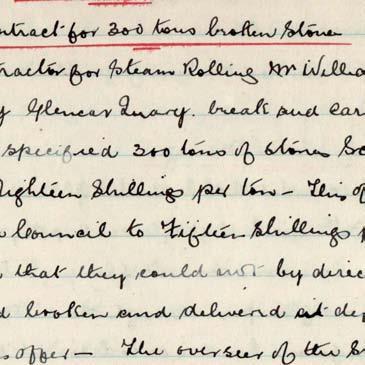 ntract for 300 tons broken Stones
tractor for Steam Rolling Mr Willia
y Glencar Quary. break and car
specified 300 tons of Stones
Eighteen Shillings per ton – This of
Council to Fifteen Shillings p
that they could not by direc
d broken and delivered at dep
s offer – The overseer of the S